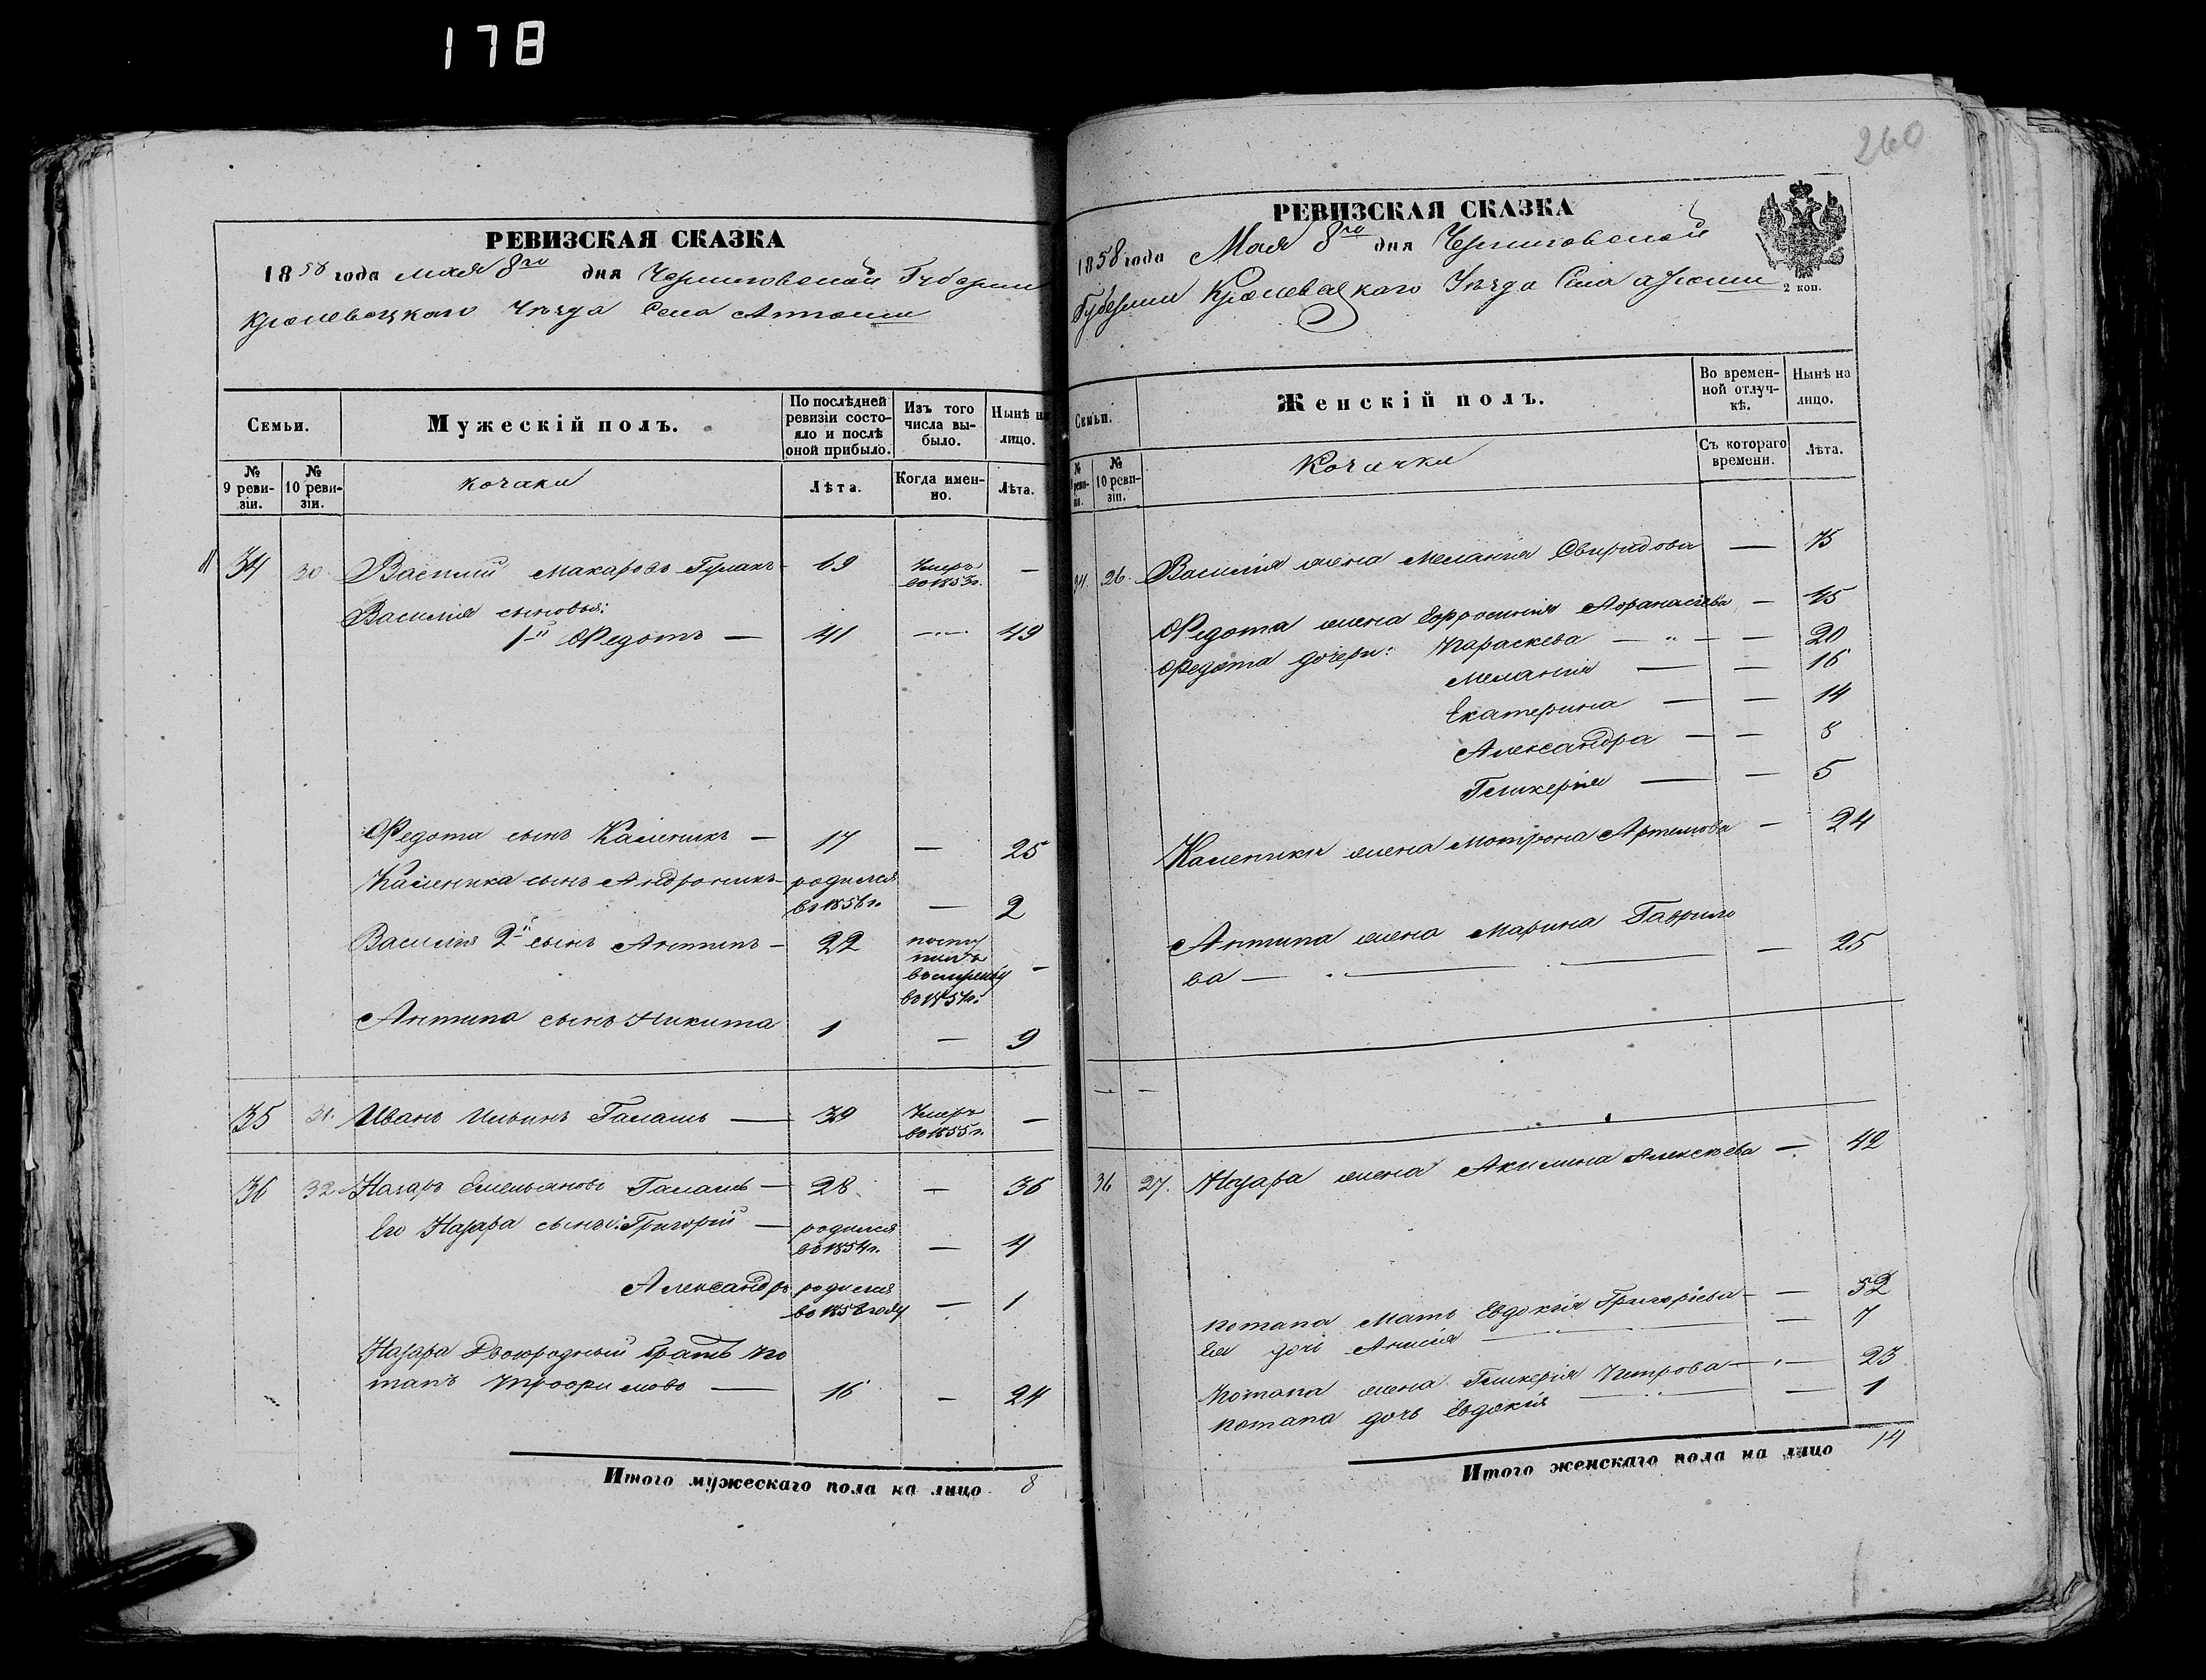 178
РЕВИЗСКАЯ СКАЗКА
1858 года мая 8го дня Черниговской Губернии
Кролевецкаго Уѣзда Села
Семьи.
Мужескій полъ.
По послѣдней ревизіи состояло и послѣ оной прибыло.
Изъ того числа выбыло.
Нынѣ на лицо.
№ 9 ревизіи.
№ 10 ревизіи.
козаки
Лѣта.
Когда именно.
Лѣта.
34 30. Василий Макаровъ 69 Умеръ во 1853г. —
Василия сыновья:
1й Федотъ — 41 — 49
Федота сынъ Каленикъ — 17 — 25
Каленика сынъ Андроникъ — родился во 1856г. — 2
Василия 2й сынъ Антипъ — 22 во 1854г. —
Антипа сынъ Никита 1 — 9
35 31. Иванъ Ильинъ Галашъ — 39 Умеръ во 1855г. —
36 32. Назаръ Емельяновъ Галашъ — 28 — 36
Его Назара сыны: Григорий — родился во 1854г. — 4
Александръ родился — 1
Назара Двоюродный братъ По
тапъ Трофимовъ — 16 — 24
Итого мужескаго пола на лицо 8
260
РЕВИЗСКАЯ СКАЗКА
1858 года Мая 8го дня Черниговской
Губернии Кролевецкаго Уѣзда Села
2 коп.
Семьи.
Женскій полъ.
Во временной отлучкѣ.
Нынѣ на лицо.
№ 9 ревизіи.
№ 10 ревизіи.
Козачки
Съ котораго времени.
Лѣта.
34. 26. Василия жена Мелания Свиридова — 75
Федота жена Ефросиния Афанасиева — 45
Федота дочери: Параскева — 20
Мелания — 16
Екатерина — 14
Александра — 8
Гликерия — 5
Каленика жена Мотрона Артемова — 24
Антипа жена Марина Гаврило
ва — 25
— —
36 27. Назара жена Акилина Алексѣева — 42
Потапа Мать Евдокия Григориева — 52
Ея дочь Анисия — 7
Потапа жена Гликерия Петрова — 23
Потапа дочь Евдокия — 1
Итого женскаго пола на лицо 14